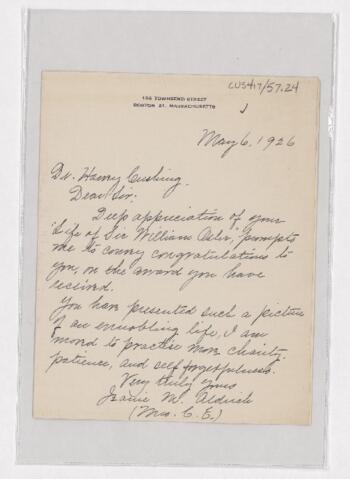 CUS417/57.24
196 TOWNSEND STREET
BOSTON 21, MASSACHUSETTS
May 6, 1926
Dr. Harvey Cushing.
Dear Sir:
Deep appreciation of your
"Life of Sir William Osler," prompts
me to convey congratulations to
you, on the award you have
received.
You have presented such a picture
of an ennobling life, I am
moved to practise more charity,
patience, and self forgetfulness.
Very truly yours
M. Aldrich
(Mrs. C. E.)